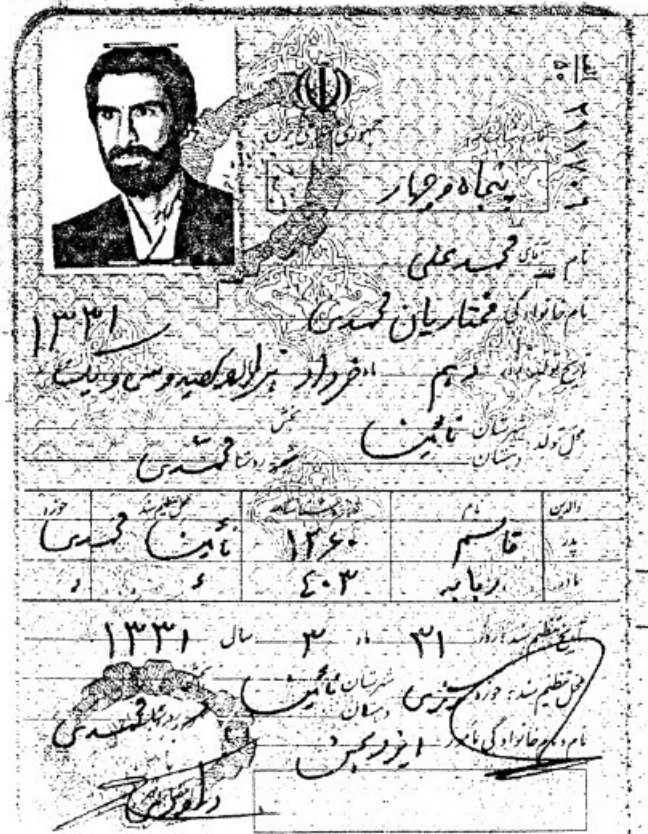 جمهوری اسلامی ایران
شماره شناسنامه
۲۱۱۷۰۹
الف
۵۰
پنجاه و چهار
نام آقای محمد علی
نام خانوادگی مختاریان محمدی
۱۳۳۱
تاریخ تولد: روز دهم ماه خرداد هزار و سیصد و سی و یک
محل تولد شهرستان نائین بخش
دهستان شهر روستا محمدی
والدین نام شماره شناسنامه محل تنظیم سند حوزه
پدر قاسم ۱۳۶۰ نائین محمدی
مادر ربابه ۴۰۳ ء ء
تاریخ تنظیم سند: روز ۳۱ ماه ۳ سال ۱۳۳۱
محل تنظیم سند: حوزه شهرستان نائین
دهستان محمدی
نام و نام خانوادگی مامور